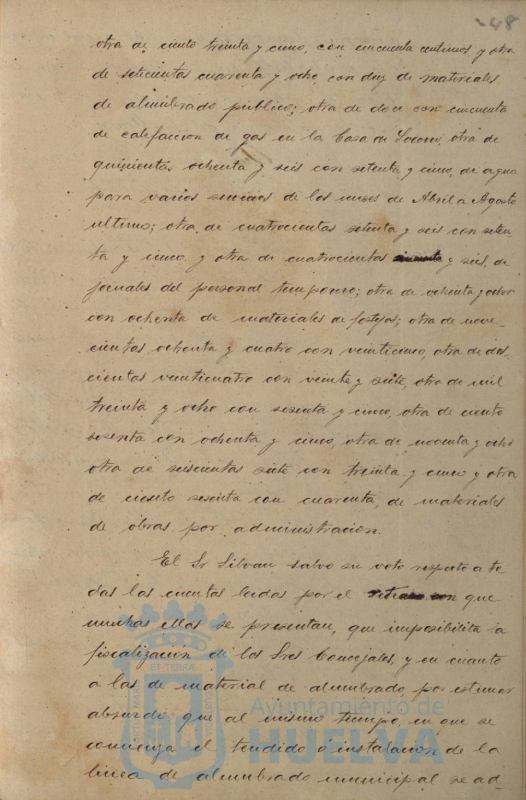 48
otra de ciento treinta y cinco, con cincuenta centimos y otra
de setecientas cuarenta y ocho, con diez de materiales
de alumbrado público; otra de doce con cincuenta
de calefaccion de gas en la Casa de Socorro, otra de
quinientas ochenta y seis con setenta y cinco, de agua
para varios servicios de los meses de Abril a Agosto
ultimo; otra de cuatrocientas setenta y seis con seten-
ta y cinco y otra de cuatrocientas y seis, de
jornales del personal temporero; otra de ochenta y ocho
con ochenta de materiales de festejos; otra de nove-
cientas ochenta y cuatro con veinticinco, otra de dos-
cientas veinticuatro con veinte y siete, otra de mil
treinta y ocho con sesenta y cinco, otra de ciento
sesenta con ochenta y cinco, otra de noventa y ocho
otra de seiscientas siete con treinta y cinco y otra
de ciento sesenta con cuarenta, de materiales
de obras por administración.
El Sr Silvan salvo su voto respecto a to
das las cuentas leidas por el retraso con que
muchas ellas se presentan, que imposibilita la
fiscalización de los Sres Concejales, y en cuanto
a las de material de alumbrado, por estimar
absurdo que al mismo tiempo, en que se
comienza el tendido o instalacion de la
linea de alumbrado municipal se ad-
Ayuntamiento de
HUELVA